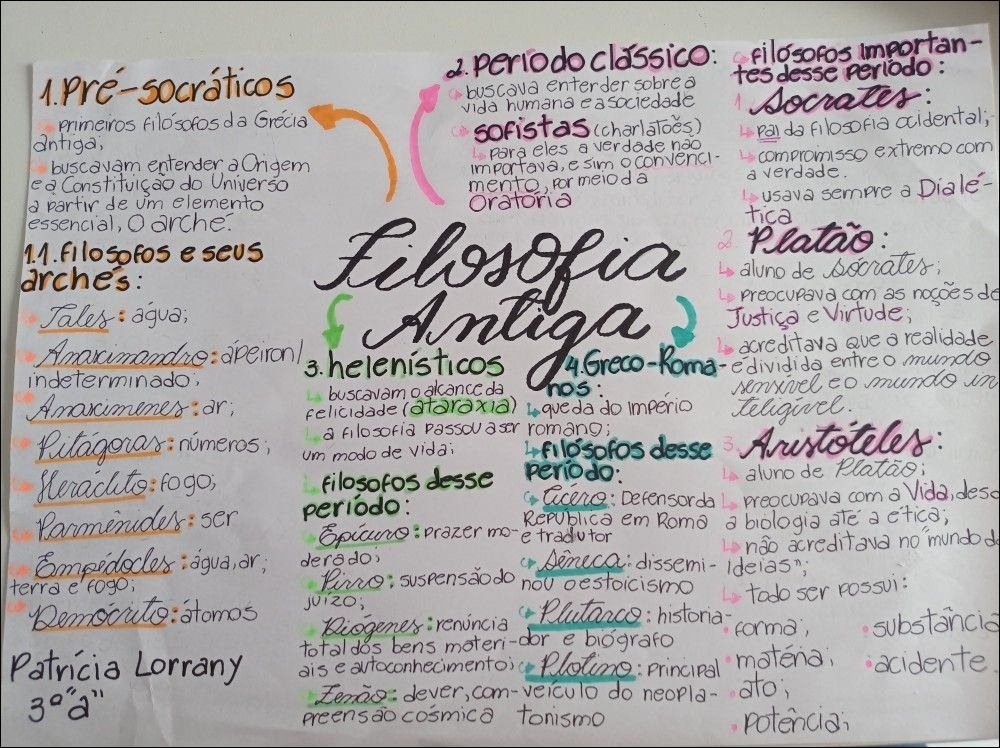 Filosofia
Antiga
1. Pré-socráticos
primeiros filósofos da Grécia
antiga;
buscavam entender a Origem
e a Constituição do Universo
a partir de um elemento
essencial, O arché.
1.1. filosofos e seus
archés:
Tales: água;
Anaximandro: ápeiron/
indeterminado;
Anaxímenes: ar;
Pitágoras: números;
Heráclito: fogo;
Parmênides: ser
Empédocles: água, ar,
terra e fogo;
Demócrito: átomos
Patrícia Lorrany
3º "a"
2. período clássico:
buscava entender sobre a
vida humana e a sociedade
sofistas (charlatões)
para eles a verdade não
importava, e sim o convenci-
mento, por meio da
Oratória
filósofos importan-
tes desse período:
1. Socrates:
pai da filosofia ocidental;
compromisso extremo com
a verdade.
usava sempre a Dialé-
tica
2. Platão:
aluno de Sócrates;
preocupava com as noções de
Justiça e Virtude;
acreditava que a realidade
e dividida entre o mundo
sensível e o mundo in
teligível.
3. Aristóteles:
aluno de Platão;
preocupava com a Vida, des
a biologia até a etica;
não acreditava no "mundo d
Ideias";
todo ser possui:
forma;
matéria;
ato;
potência;
substância
acidente
3. helenísticos
buscavam o alcance da
felicidade (ataraxia)
a filosofia passou a ser
um modo de vida;
filosofos desse
período:
Epicuro: prazer mo-
derado;
Pirro: suspensão do
juízo;
Diógenes: renúncia
total dos bens materi-
ais e autoconhecimento;
Zenão: dever, com-
preensão cósmica
4. Greco-Roma-
nos:
queda do império
romano;
filósofos desse
período:
Cícero: Defensor da
República em Roma
e tradutor
Sêneca: dissemi-
nou o estoicismo
Plutarco: historia-
dor e biógrafo
Plotino: principal
veículo do neopla-
tonismo